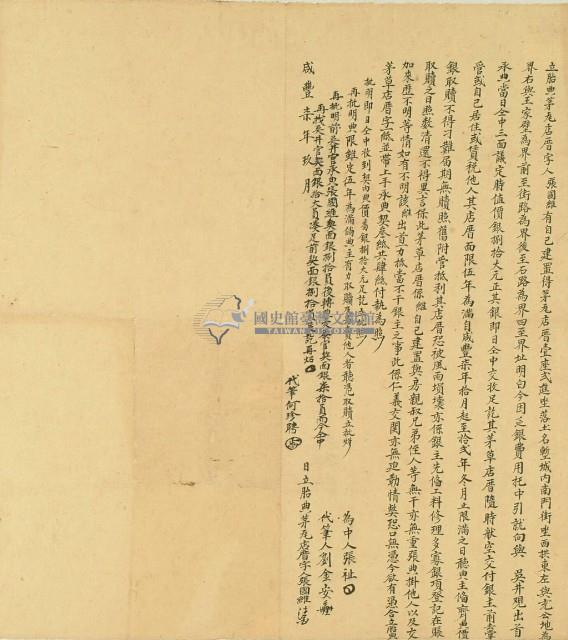 立胎典茅瓦店厝字人張國維有自己建置得茅瓦店厝壹座弍進坐落土名塹城內南門街坐西拱東左與君公地為
界右與王家壁為界前至街路為界後至石路為界四至界址明白今因乏銀費用托中引就向與吳井觀出首
承典當日仝中三面議定時值價銀捌拾大元正其銀即日仝中交收足訖其茅草店厝隨時献空交付銀主前去掌
管或自己居住或賃稅他人其店厝面限伍年為滿自咸豐柒年拾月起至拾弍年冬月止限滿之日聽典主備齊典價
銀取贖不得刁難屆期無贖照舊附管抵利其店厝恐被風雨損壞亦係銀主先備工料修理多寡銀項登記在賬
取贖之日照數清還不得異言保此茅草店厝係維自己建置與房親叔兄弟侄人等無干亦無重張典掛他人以及交
加來歷不明等情如有不明該維出首一力抵當不干銀主之事此係仁義交関亦無迫勒情獘恐口無憑今欲有憑合立
茅草店厝字紙並帶上手承典契叁紙共肆紙付執為照
批明即日仝中收到契內典價番銀捌拾大元足訖照
再批明典限雖定伍年為滿倘典主有力取贖他人者聽憑取贖立批照
再批明前吳井官承典張國維契面銀捌拾員後轉契面銀柒拾員西仝中
再找吳井官契面銀拾大員湊足前契面銀捌拾再炤
代筆何珍聘
為中人張祉
代筆人劉金安
咸豐柒年玖月 日立胎典茅瓦店厝字人張國維
國史館臺灣文獻館
TAIWAN